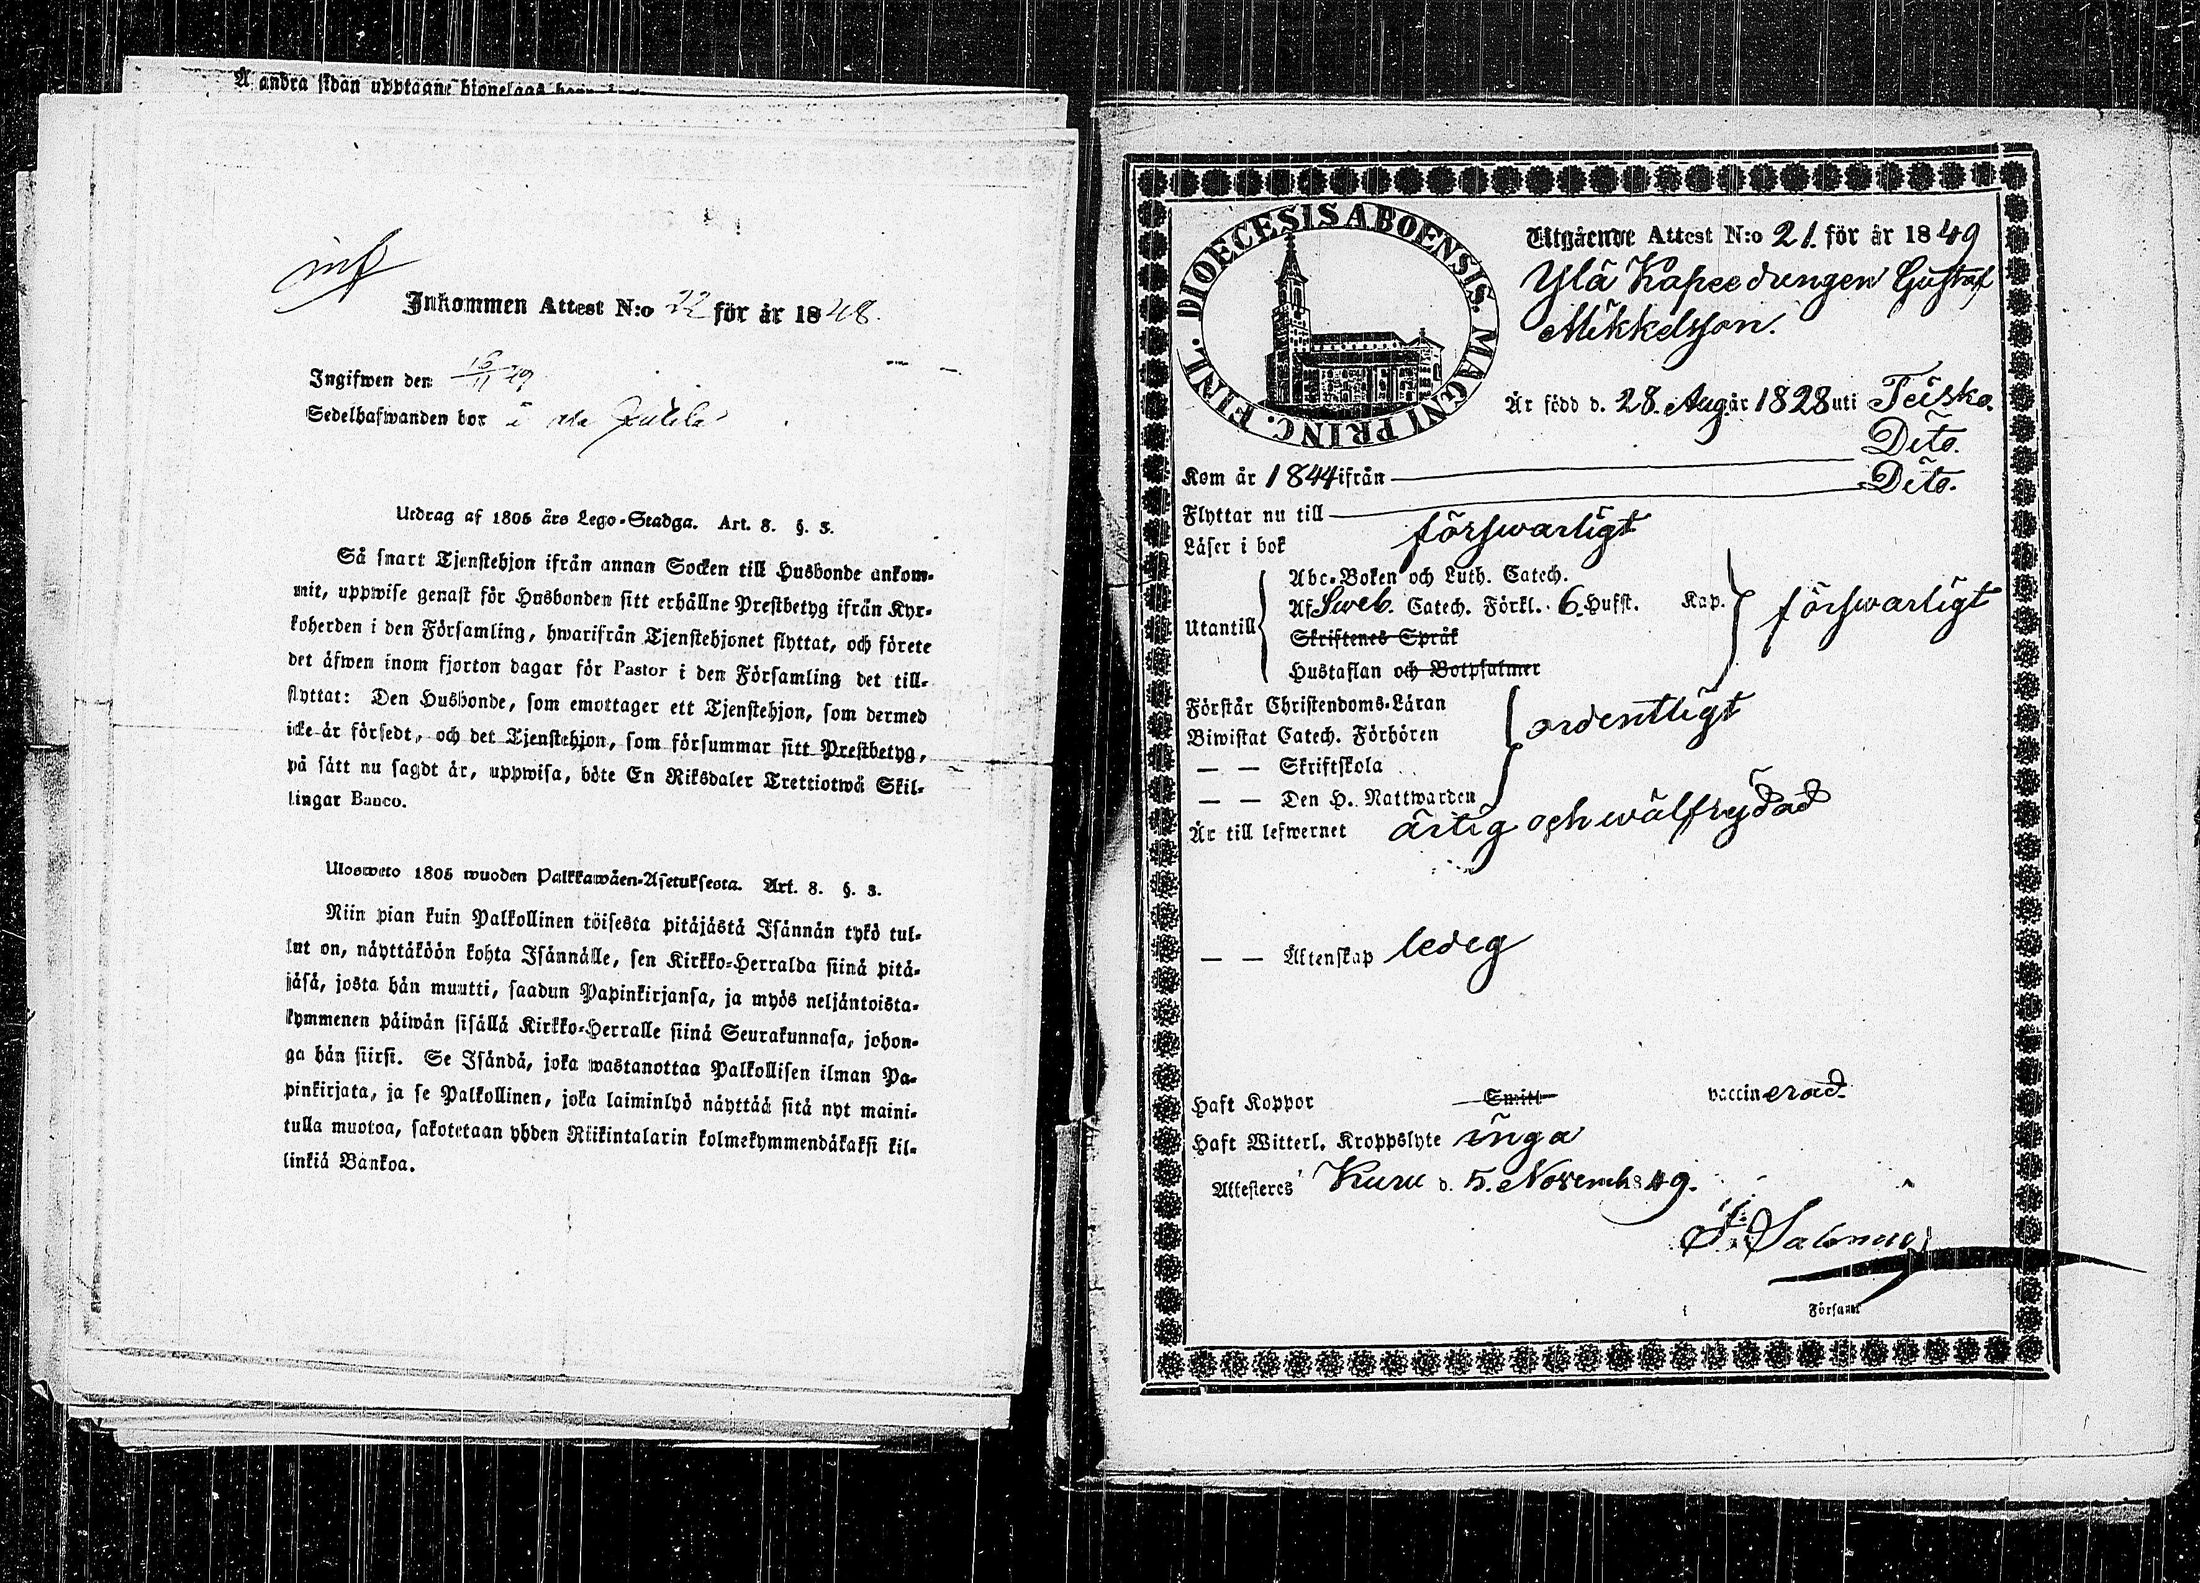 Å andra sidan upptagne
Inkommen Attest N:o 22 för år 1848.
Ingifwen den 16/11 49
Sedelhafwanden bor i
Utdrag af 1805 års Lego-Stadga. Art. 8. §. 3.
Så snart Tjenstehjon ifrån annan Socken till Husbonde ankom-
mit, uppwise genast för Husbonden sitt erhållne Prestbetyg ifrån Kyr-
koherden i den Församling, hwarifrån Tjenstehjonet flyttat, och förete
det äfwen inom fjorton dagar för Pastor i den Församling det till-
flyttat: Den Husbonde, som emottager ett Tjenstehjon, som dermed
icke är försedt, och det Tjenstehjon, som försummar sitt Prestbetyg,
på sätt nu sagdt är, uppwisa, böte En Riksdaler Trettiotwå Skil-
lingar Banco.
Ulosweto 1805 wuoden Palkkawäen-Asetuksesta. Art. 8. §. 3.
Niin pian kuin Palkollinen töisesta pitäjästä Isännän tykö tul-
lut on, näyttäköön kohta Isännälle, sen Kirkko-Herralda siinä pitä-
jäsä, josta hän muutti, saadun Papinkirjansa, ja myös neljäntoista-
kymmenen päiwän sisällä Kirkko-Herralle siinä Seurakunnasa, johon-
ga hän siirsi. Se Isändä, joka wastanottaa Palkollisen ilman Pa-
pinkirjata, ja se Palkollinen, joka laiminlyö näyttää sitä nyt maini-
tulla muotoa, sakotetaan yhden Riikintalarin kolmekymmendäkaksi kil-
linkiä Bankoa.
DIOECESIS ABOENSIS. MAGNI PRINC. FINL.
Utgående Attest N:o 21. för år 1849
Ylä Kapee drengen Gustaf
Mikkelsson.
Är född d. 28. Aug. år 1828 uti Teisko.
Kom år 1844 ifrån Dito.
Flyttar nu till Dito.
Läser i bok förswarligt
Abc-Boken och Luth. Catech.
Utantill Af Sweb. Catech. Förkl. 6. Hufst. Kap. förswarligt
Skriftenes Språk
Hustaflan och Botpsalmer
Förstår Christendoms-Läran
Biwistat Catech. Förhören ordentligt
— — Skriftskola
— — Den H. Nattwarden
Är till lefwernet ärlig och wälfrejdad
— — Äktenskap ledig
Haft Koppor Smitt vaccinerad.
Haft Witterl. Kroppslyte inga
Attesteres Kuru d. 5. Novemb. 1849.
F. Salenius
Församl